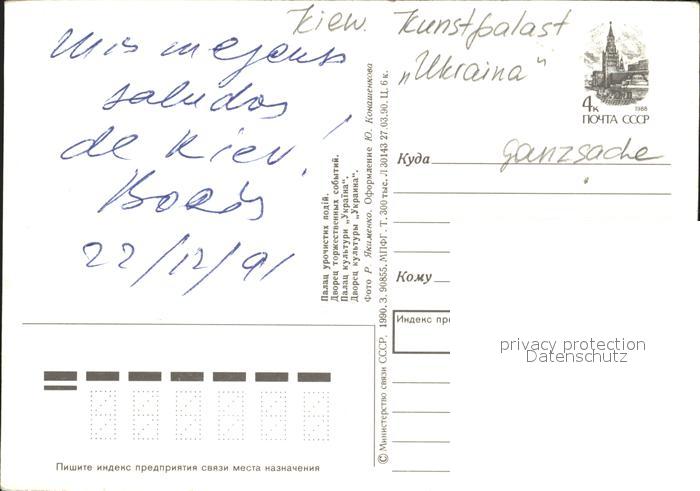 Kiew. Kunstpalast
„Ukraina“
Mis mejores
saludos
de Kiev!
22/12/91
4к
1988
ПОЧТА СССР
Куда
ganzsache
Кому
Индекс пр
privacy protection
Datenschutz
Палац урочистих подій.
Дворец торжественных событий.
Палац культури „Україна“.
Дворец культуры „Украина“.
Фото Р. Якименко. Оформление Ю. Конашенкова
© Министерство связи СССР. 1990. З. 90855. МПФГ. Т. 300 тыс. Л 30143 27.03.90. Ц. 6 к.
Пишите индекс предприятия связи места назначения